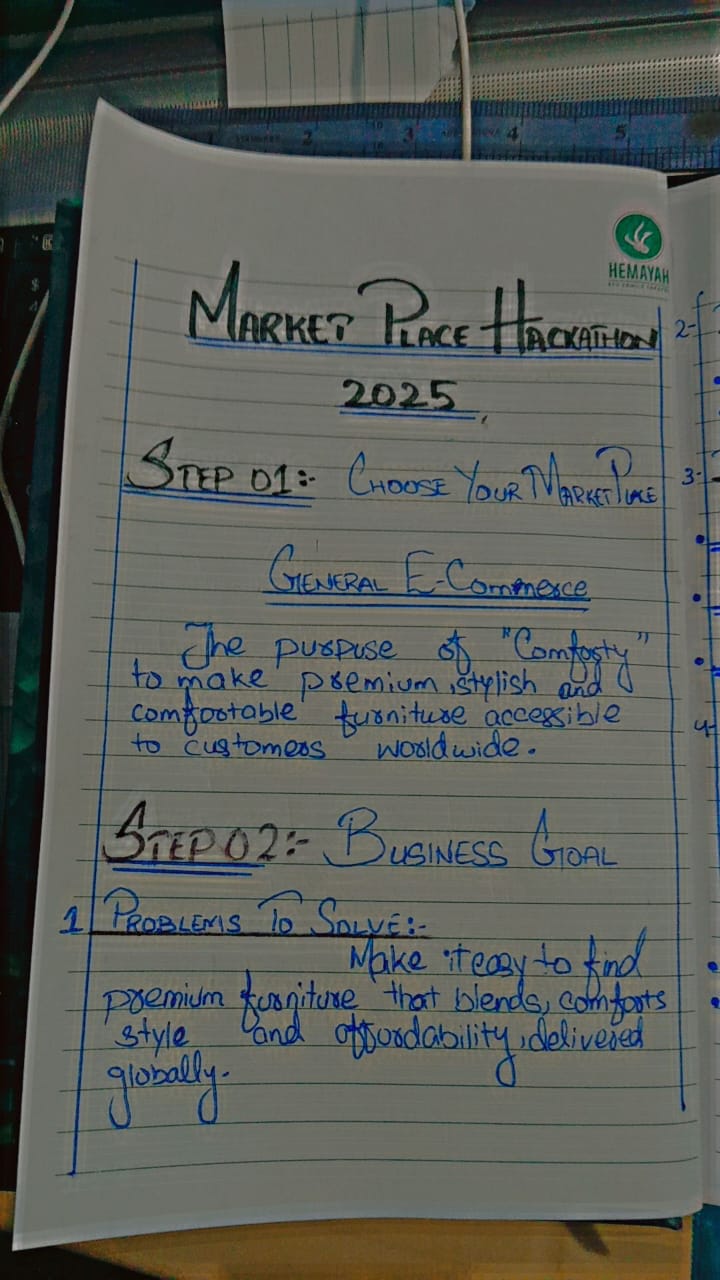 HEMAYAH
MARKET PLACE HACKATHON
2025
STEP 01:- CHOOSE YOUR MARKET PLACE
GENERAL E-Commerce
The purpose of "Comforty"
to make premium, stylish and
comfortable furniture accessible
to customers worldwide.
STEP 02:- BUSINESS GOAL
1 PROBLEMS TO SOLVE:-
Make it easy to find
premium furniture that blends, comforts
style and affordability, delivered
globally.
2-
3-
4-
2 3 4 5